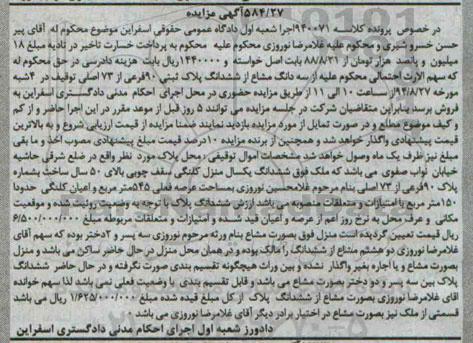 ۵۸۴/۲۷آگهی مزایده
در خصوص پرونده کلاسه ۹۴۰۰۷۱اجرا شعبه اول دادگاه عمومی حقوقی اسفراین موضوع محکوم له آقای پیر
حسن خسرو شیری و محکوم علیه غلامرضا نوروزی محکوم علیه محکوم به پرداخت خسارت تاخیر در تادیه مبلغ ۱۸
میلیون و پانصد هزار تومان از ۸۸/۸/۲۱ بابت اصل خواسته و ۱۴۴۰۰۰۰ ریال بابت هزینه دادرسی در حق محکوم له
که سهم الارث احتمالی محکوم علیه از سه دانگ مشاع از ششدانگ پلاک ثبتی ۹۰فرعی از ۷۳ اصلی توقیف در ۴شنبه
مورخه ۹۴/۸/۲۷از ساعت ۱۰ الی ۱۱ از طریق مزایده حضوری در محل اجرای احکام مدنی دادگستری اسفراین به
فروش برسد بنابراین متقاضیان شرکت در جلسه مزایده می توانند ۵ روز قبل از موعد مقرر در این اجرا حاضر و از کم
و کیف موضوع مطلع و در صورت تمایل از مورد مزایده بازدید نمایند ضمنا مزایده از قیمت ارزیابی شروع و به بالاترین
قیمت پیشنهادی واگذار خواهد شد و همچنین از برنده مزایده ۱۰درصد قیمت مبلغ پیشنهادی مصوب اخذ و ما بقی
مبلغ نیز ظرف یک ماه وصول خواهد شد مشخصات اموال توقیفی : محل پلاک مورد نظر واقع در ضلع شرقی حاشیه
خیابان نواب صفوی می باشد که ملک فوق ششدانگ یکسال منزل کلنگی سقف چوبی بالای ۵۰ سال ساخت بشماره
پلاک ۹۰فرعی از ۷۳ اصلی بنام مرحوم غلامحسین نوروزی بمساحت عرصه فعلی ۵۴۵متر مربع و اعیان کلنگی حدودا
۱۵۰متر مربع با امتیازات و متعلقات منصوبه می باشد ارزش ششدانگ پلاک با توجه به وضعیت رویت شده و موقعیت
مکانی و عرف محل به نرخ روز اعم از عرصه و اعیان قید شده و امتیازات و متعلقات مربوطه مبلغ ۶/۵۰۰/۰۰۰/۰۰۰
ریال قیمت تعیین گردیده است منزل فوق بصورت مشاع بنام ورثه مرحوم نوروزی سه پسر و ۲دختر بوده که سهم آقای
غلامرضا نوروزی دو هشتم مشاع از ششدانگ را مالک بوده و در همان محل منزل در حال حاضر ساکن می باشد و منزل
بصورت مشاع و با اجاره بغیر واگذار نشده و بین وراث هیچگونه تقسیم بندی صورت نگرفته و در حال حاضر ششدانگ
پلاک بین سه پسر و دو دختر بصورت مشاع می باشد و قابل تقسیم بندی با وضعیت فعلی نمی باشد لذا سهم خوانده
اقای غلامرضا نوروزی بصورت مشاع از ششدانگ پلاک از کل مبلغ قیده شده مبلغ ۱/۶۲۵/۰۰۰/۰۰۰ ریال می باشد
قسمتی از ملک نیز بصورت مشاع در اختیار برادر دیگر آقای غلامرضا نوروزی می باشد .
دادورز شعبه اول اجرای احکام مدنی دادگستری اسفراین